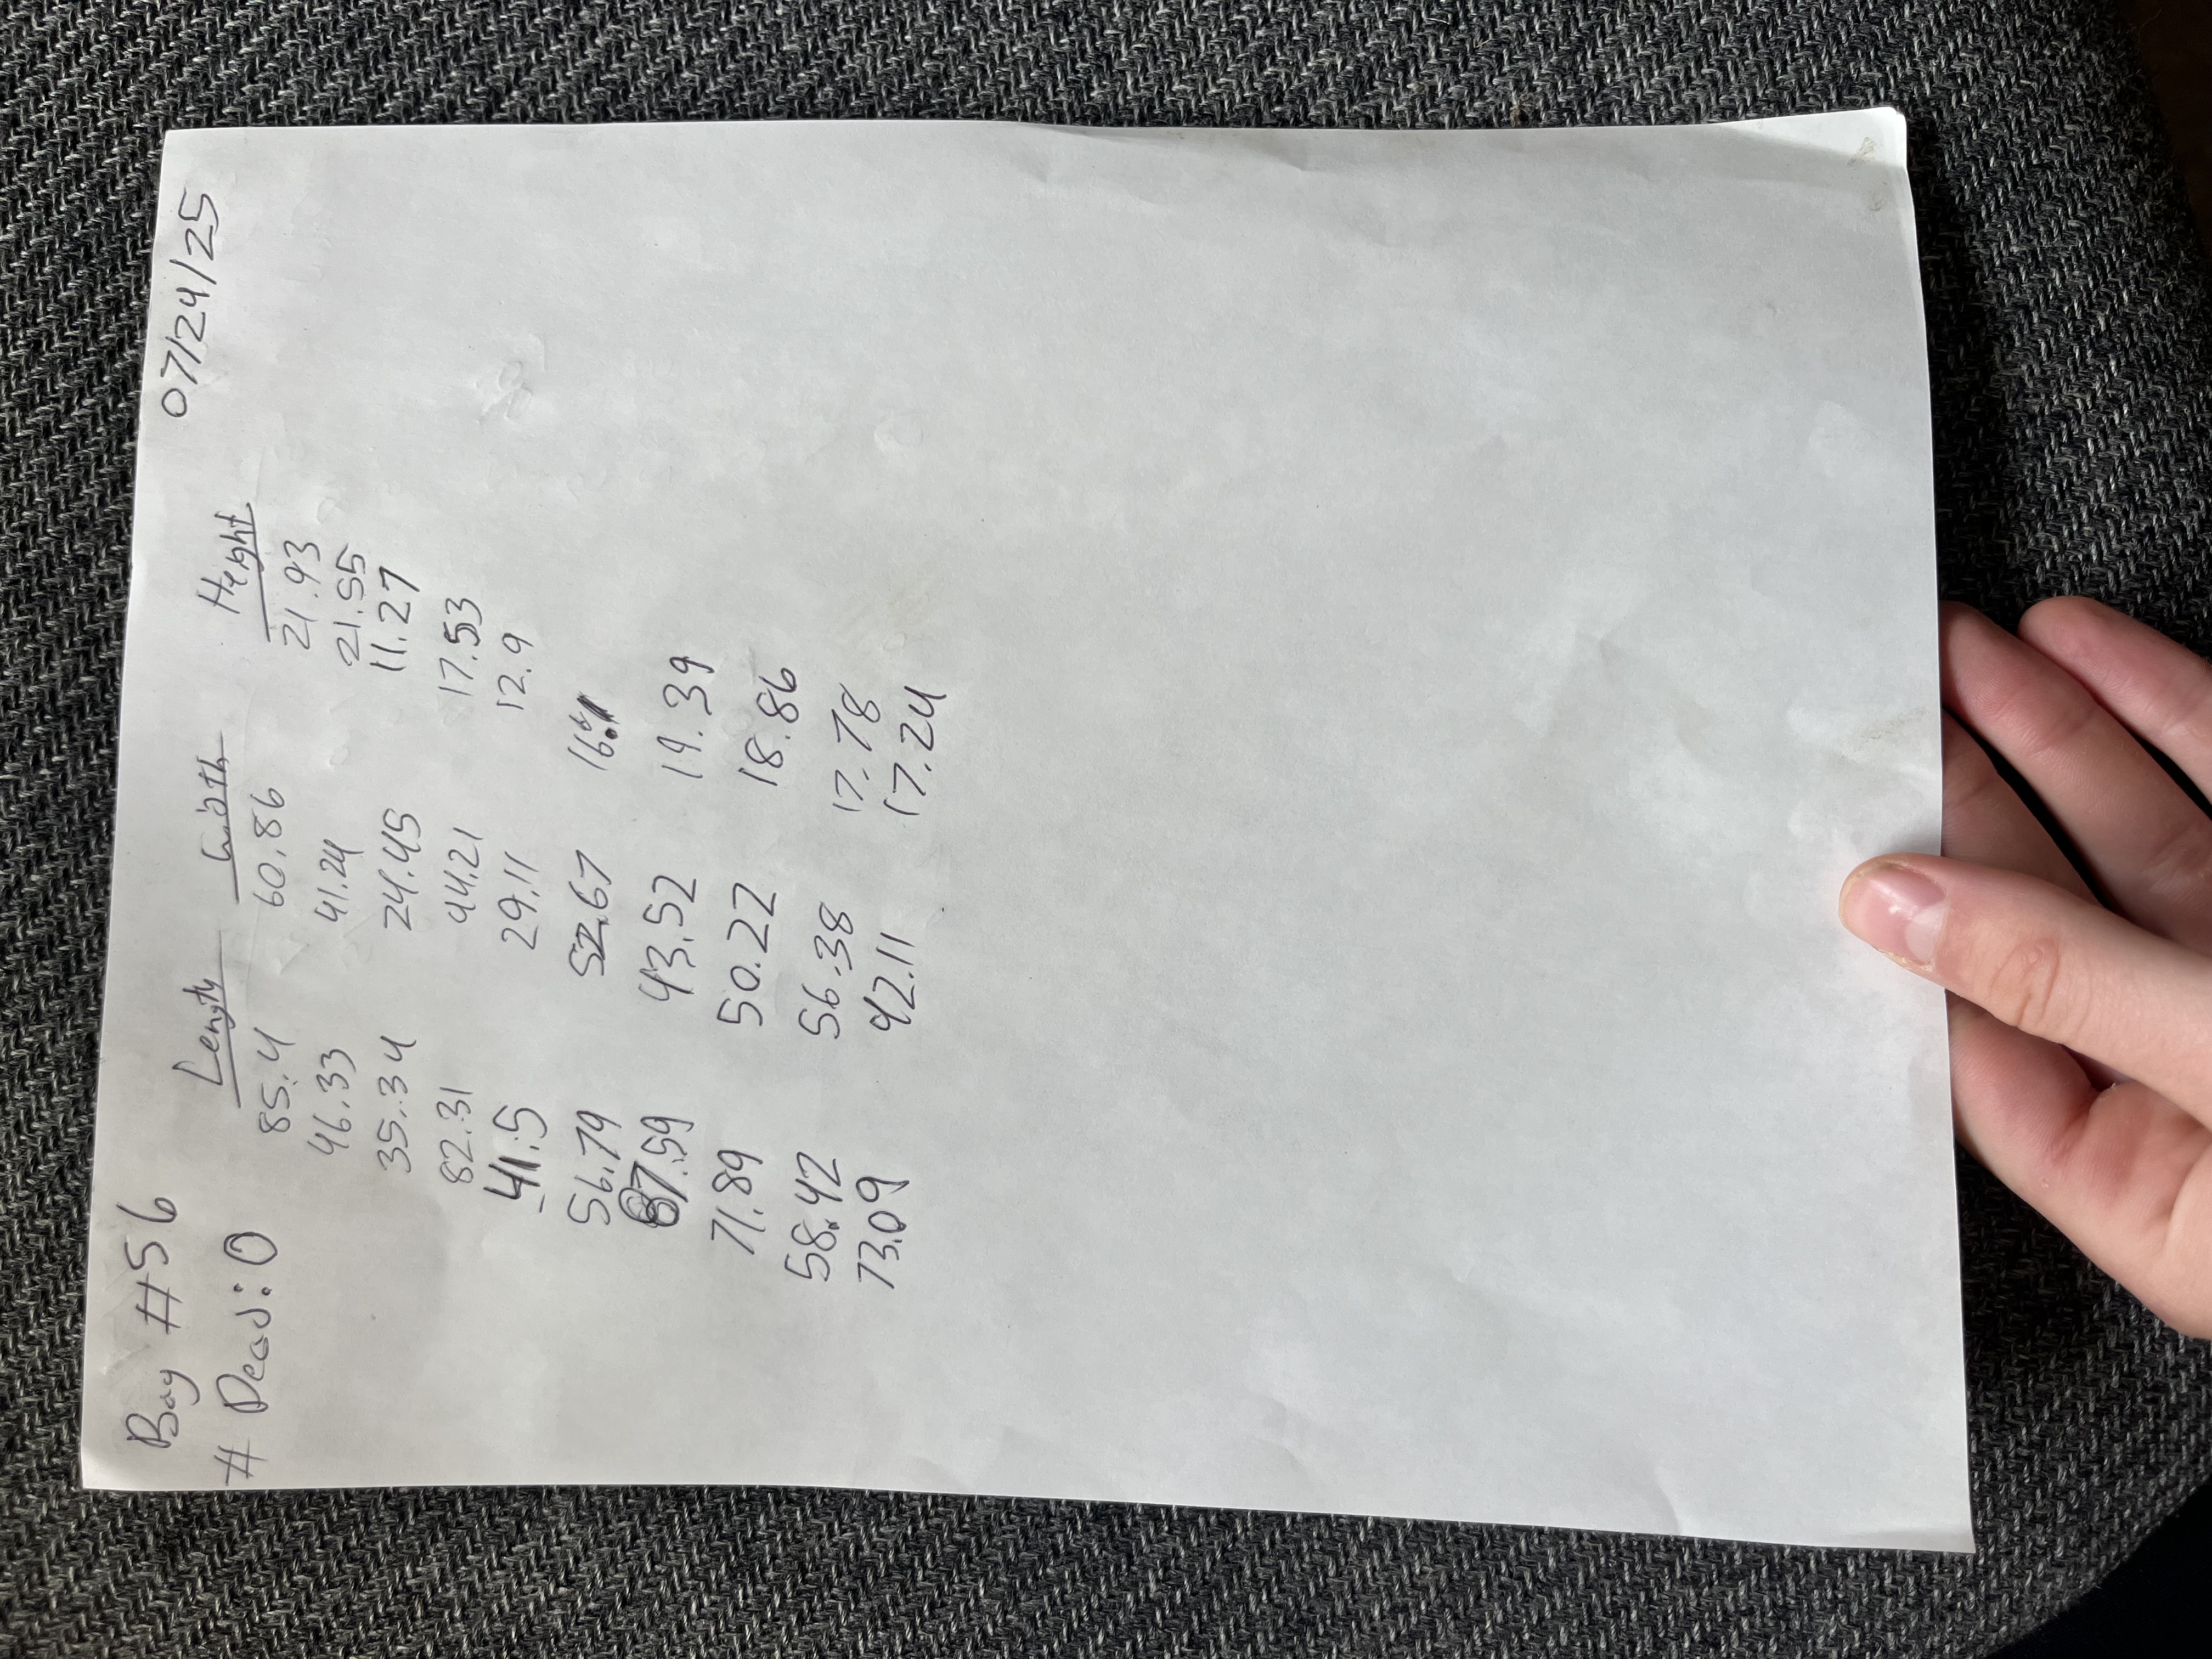 Bag #56
07/24/25
# Dead: 0
Length Width Height
85.4 60.86 21.93
46.33 41.24 21.55
35.34 24.45 11.27
82.31 44.21 17.53
41.5 29.11 12.9
56.79 52.67
87.59 43.52 19.39
71.89 50.22 18.86
58.42 56.38 17.78
73.09 42.11 17.24